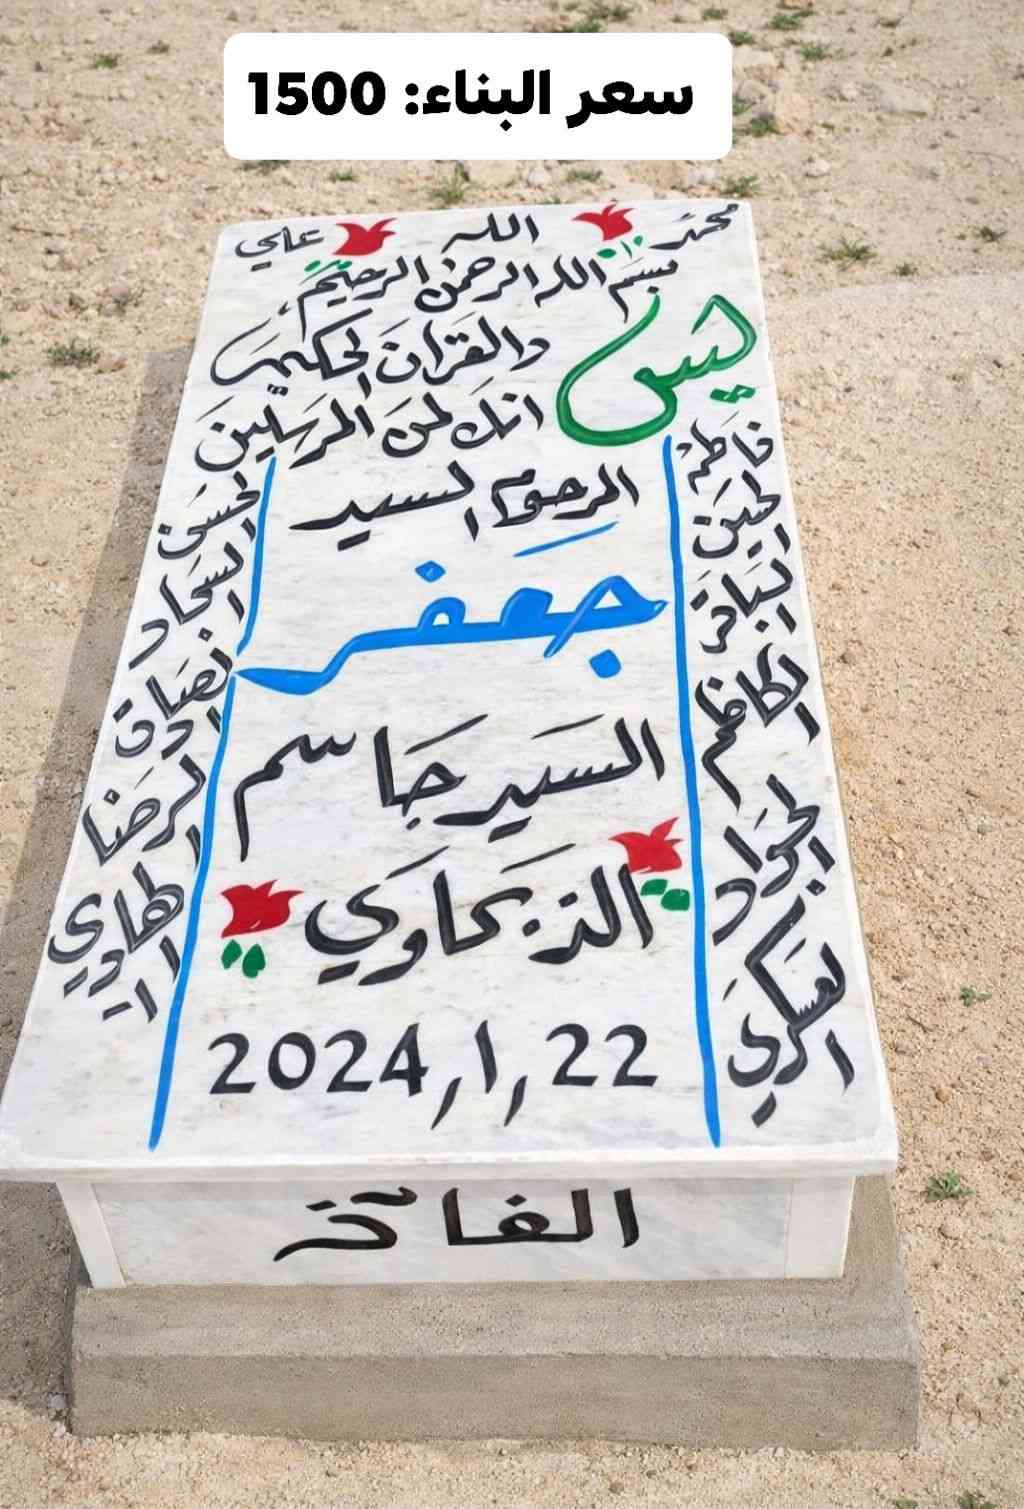 سعر البناء: 1500
محمد الله علي
بسم الله الرحمن الرحيم
يس والقران الحكيم
انك لمن المرسلين
المرحوم السيد
جعفر
السيد جاسم
22,1,2024
فاطمة
الحسين
الباقر
الكاظم
الجواد
العسكري
الحسن
السجاد
الصادق
الرضا
الهادي